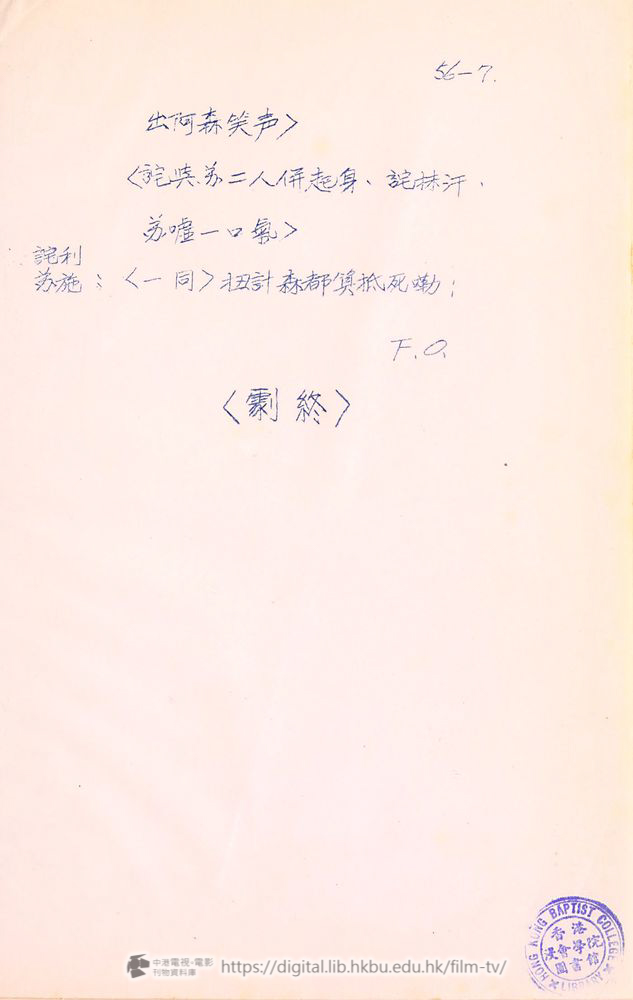 56-7.
出阿森笑声>
<詫與苏二人併起身、詫抹汗、
苏嘘一口氣>
詫利
苏施：<一同>扭計森都算抵死嘞；
F.O.
<劇終>
HONG KONG BAPTIST COLLEGE
香港
浸會學院
圖書館
LIBRARY
中港電視·電影
刊物資料庫
https://digital.lib.hkbu.edu.hk/film-tv/